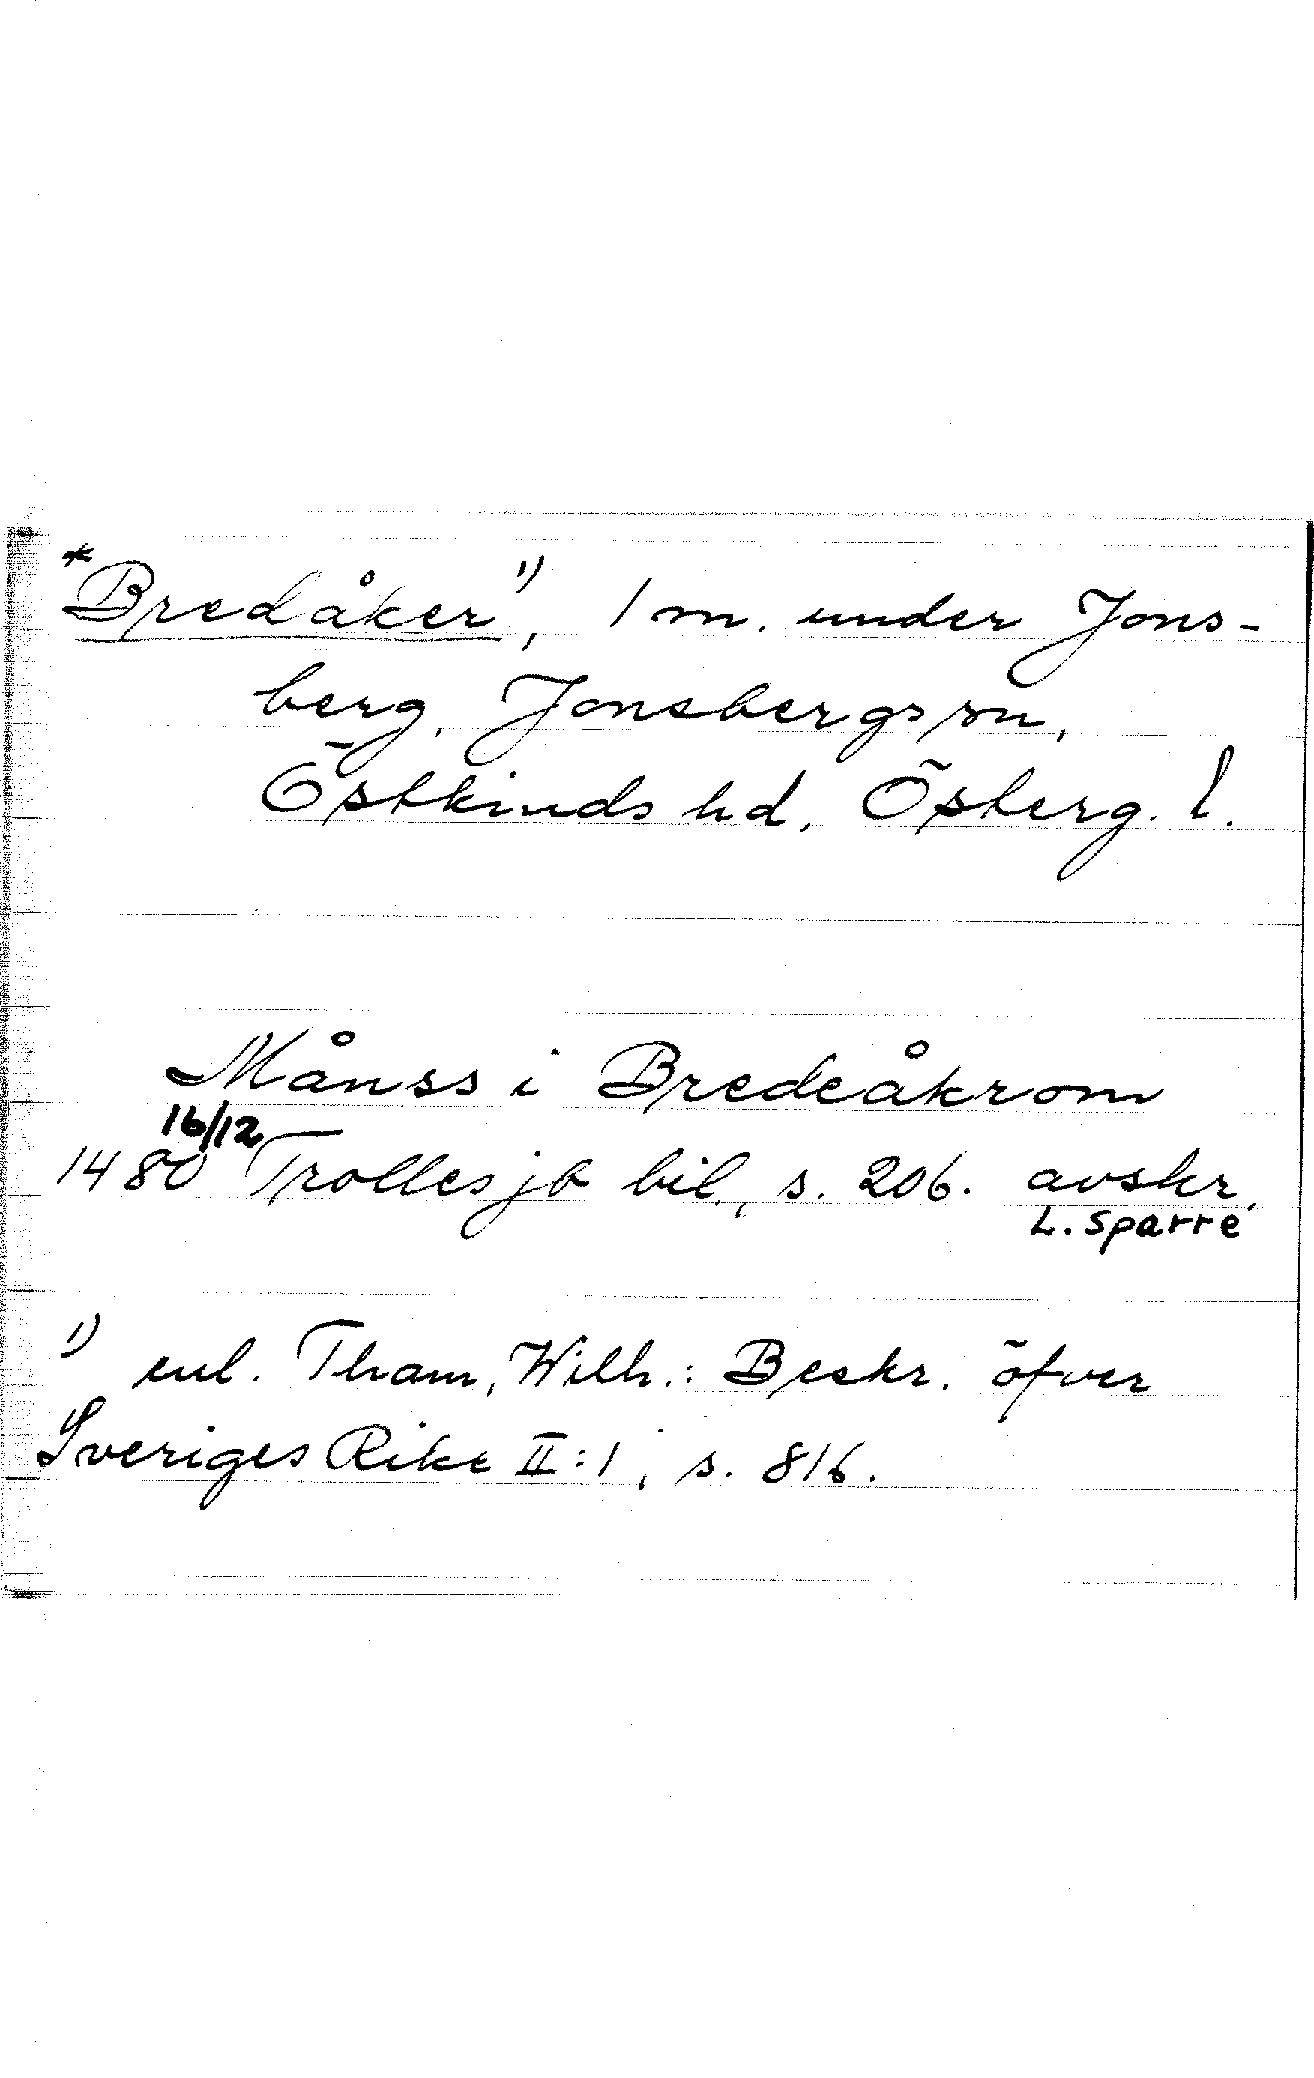 *Bredåker¹⁾, 1 m. under Jons-
berg, Jonsbergs sn,
Östkinds hd, Österg. l.
Månss i Bredeåkrom
16/12
1480 Trolles jb bil., s. 206. avskr.
L. Sparre
¹⁾ enl. Tham, Wilh.: Beskr. öfver
Sveriges Rike II:1, s. 816.